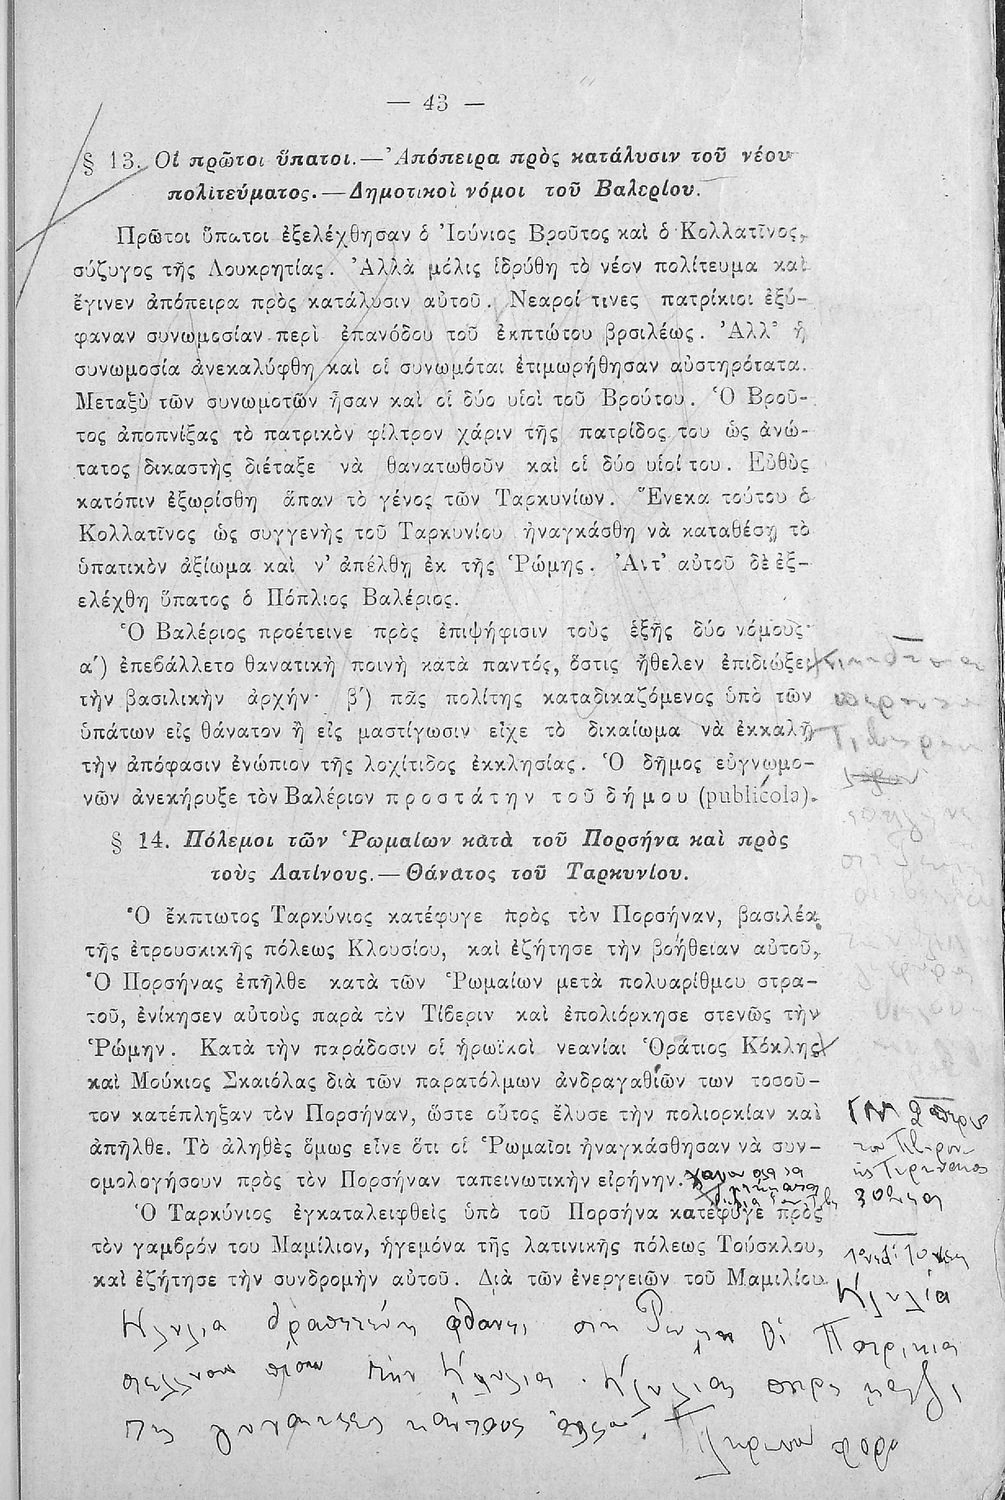 — 43 —
§ 13. Οἱ πρῶτοι ὕπατοι.—Ἀπόπειρα πρὸς κατάλυσιν τοῦ νέου
πολιτεύματος.—Δημοτικοὶ νόμοι τοῦ Βαλερίου.
Πρῶτοι ὕπατοι ἐξελέχθησαν ὁ Ἰούνιος Βροῦτος καὶ ὁ Κολλατῖνος,
σύζυγος τῆς Λουκρητίας. Ἀλλὰ μόλις ἱδρύθη τὸ νέον πολίτευμα καὶ
ἔγινεν ἀπόπειρα πρὸς κατάλυσιν αὐτοῦ. Νεαροί τινες πατρίκιοι ἐξύ-
φαναν συνωμοσίαν περὶ ἐπανόδου τοῦ ἐκπτώτου βρσιλέως. Ἀλλ' ἡ
συνωμοσία ἀνεκαλύφθη καὶ οἱ συνωμόται ἐτιμωρήθησαν αὐστηρότατα.
Μεταξὺ τῶν συνωμοτῶν ἦσαν καὶ οἱ δύο υἱοὶ τοῦ Βρούτου. Ὁ Βροῦ-
τος ἀποπνίξας τὸ πατρικὸν φίλτρον χάριν τῆς πατρίδος του ὡς ἀνώ-
τατος δικαστὴς διέταξε νὰ θανατωθοῦν καὶ οἱ δύο υἱοί του. Εὐθὺς
κατόπιν ἐξωρίσθη ἅπαν τὸ γένος τῶν Ταρκυνίων. Ἕνεκα τούτου ὁ
Κολλατῖνος ὡς συγγενὴς τοῦ Ταρκυνίου ἠναγκάσθη νὰ καταθέσῃ τὸ
ὑπατικὸν ἀξίωμα καὶ ν' ἀπέλθῃ ἐκ τῆς Ῥώμης. Ἀντ' αὐτοῦ δὲ ἐξ-
ελέχθη ὕπατος ὁ Πόπλιος Βαλέριος.
Ὁ Βαλέριος προέτεινε πρὸς ἐπιψήφισιν τοὺς ἑξῆς δύο νόμους·
α') ἐπεβάλλετο θανατικὴ ποινὴ κατὰ παντός, ὅστις ἤθελεν ἐπιδιώξει
τὴν βασιλικὴν ἀρχήν· β') πᾶς πολίτης καταδικαζόμενος ὑπὸ τῶν
ὑπάτων εἰς θάνατον ἢ εἰς μαστίγωσιν εἶχε τὸ δικαίωμα νὰ ἐκκαλῇ
τὴν ἀπόφασιν ἐνώπιον τῆς λοχίτιδος ἐκκλησίας. Ὁ δῆμος εὐγνωμο-
νῶν ἀνεκήρυξε τὸν Βαλέριον προστάτην τοῦ δήμου (publicola).
§ 14. Πόλεμοι τῶν Ῥωμαίων κατὰ τοῦ Πορσήνα καὶ πρὸς
τοὺς Λατίνους.—Θάνατος τοῦ Ταρκυνίου.
Ὁ ἔκπτωτος Ταρκύνιος κατέφυγε πρὸς τὸν Πορσήναν, βασιλέα
τῆς ἐτρουσκικῆς πόλεως Κλουσίου, καὶ ἐζήτησε τὴν βοήθειαν αὐτοῦ.
Ὁ Πορσήνας ἐπῆλθε κατὰ τῶν Ῥωμαίων μετὰ πολυαρίθμου στρα-
τοῦ, ἐνίκησεν αὐτοὺς παρὰ τὸν Τίβεριν καὶ ἐπολιόρκησε στενῶς τὴν
Ῥώμην. Κατὰ τὴν παράδοσιν οἱ ἡρωϊκοὶ νεανίαι Ὁράτιος Κόκλης
καὶ Μούκιος Σκαιόλας διὰ τῶν παρατόλμων ἀνδραγαθιῶν των τοσοῦ-
τον κατέπληξαν τὸν Πορσήναν, ὥστε οὗτος ἔλυσε τὴν πολιορκίαν καὶ
ἀπῆλθε. Τὸ ἀληθὲς ὅμως εἶνε ὅτι οἱ Ῥωμαῖοι ἠναγκάσθησαν νὰ συν-
ομολογήσουν πρὸς τὸν Πορσήναν ταπεινωτικὴν εἰρήνην.
Ὁ Ταρκύνιος ἐγκαταλειφθεὶς ὑπὸ τοῦ Πορσήνα κατέφυγε πρὸς
τὸν γαμβρόν του Μαμίλιον, ἡγεμόνα τῆς λατινικῆς πόλεως Τούσκλου,
καὶ ἐζήτησε τὴν συνδρομὴν αὐτοῦ. Διὰ τῶν ἐνεργειῶν τοῦ Μαμιλίου
Κλυλία
Κλυλια δραπετεύη φθάνει στη Ρώμη Οἱ Πατρικιοι
στελλνουν πίσω την Κλυλια.